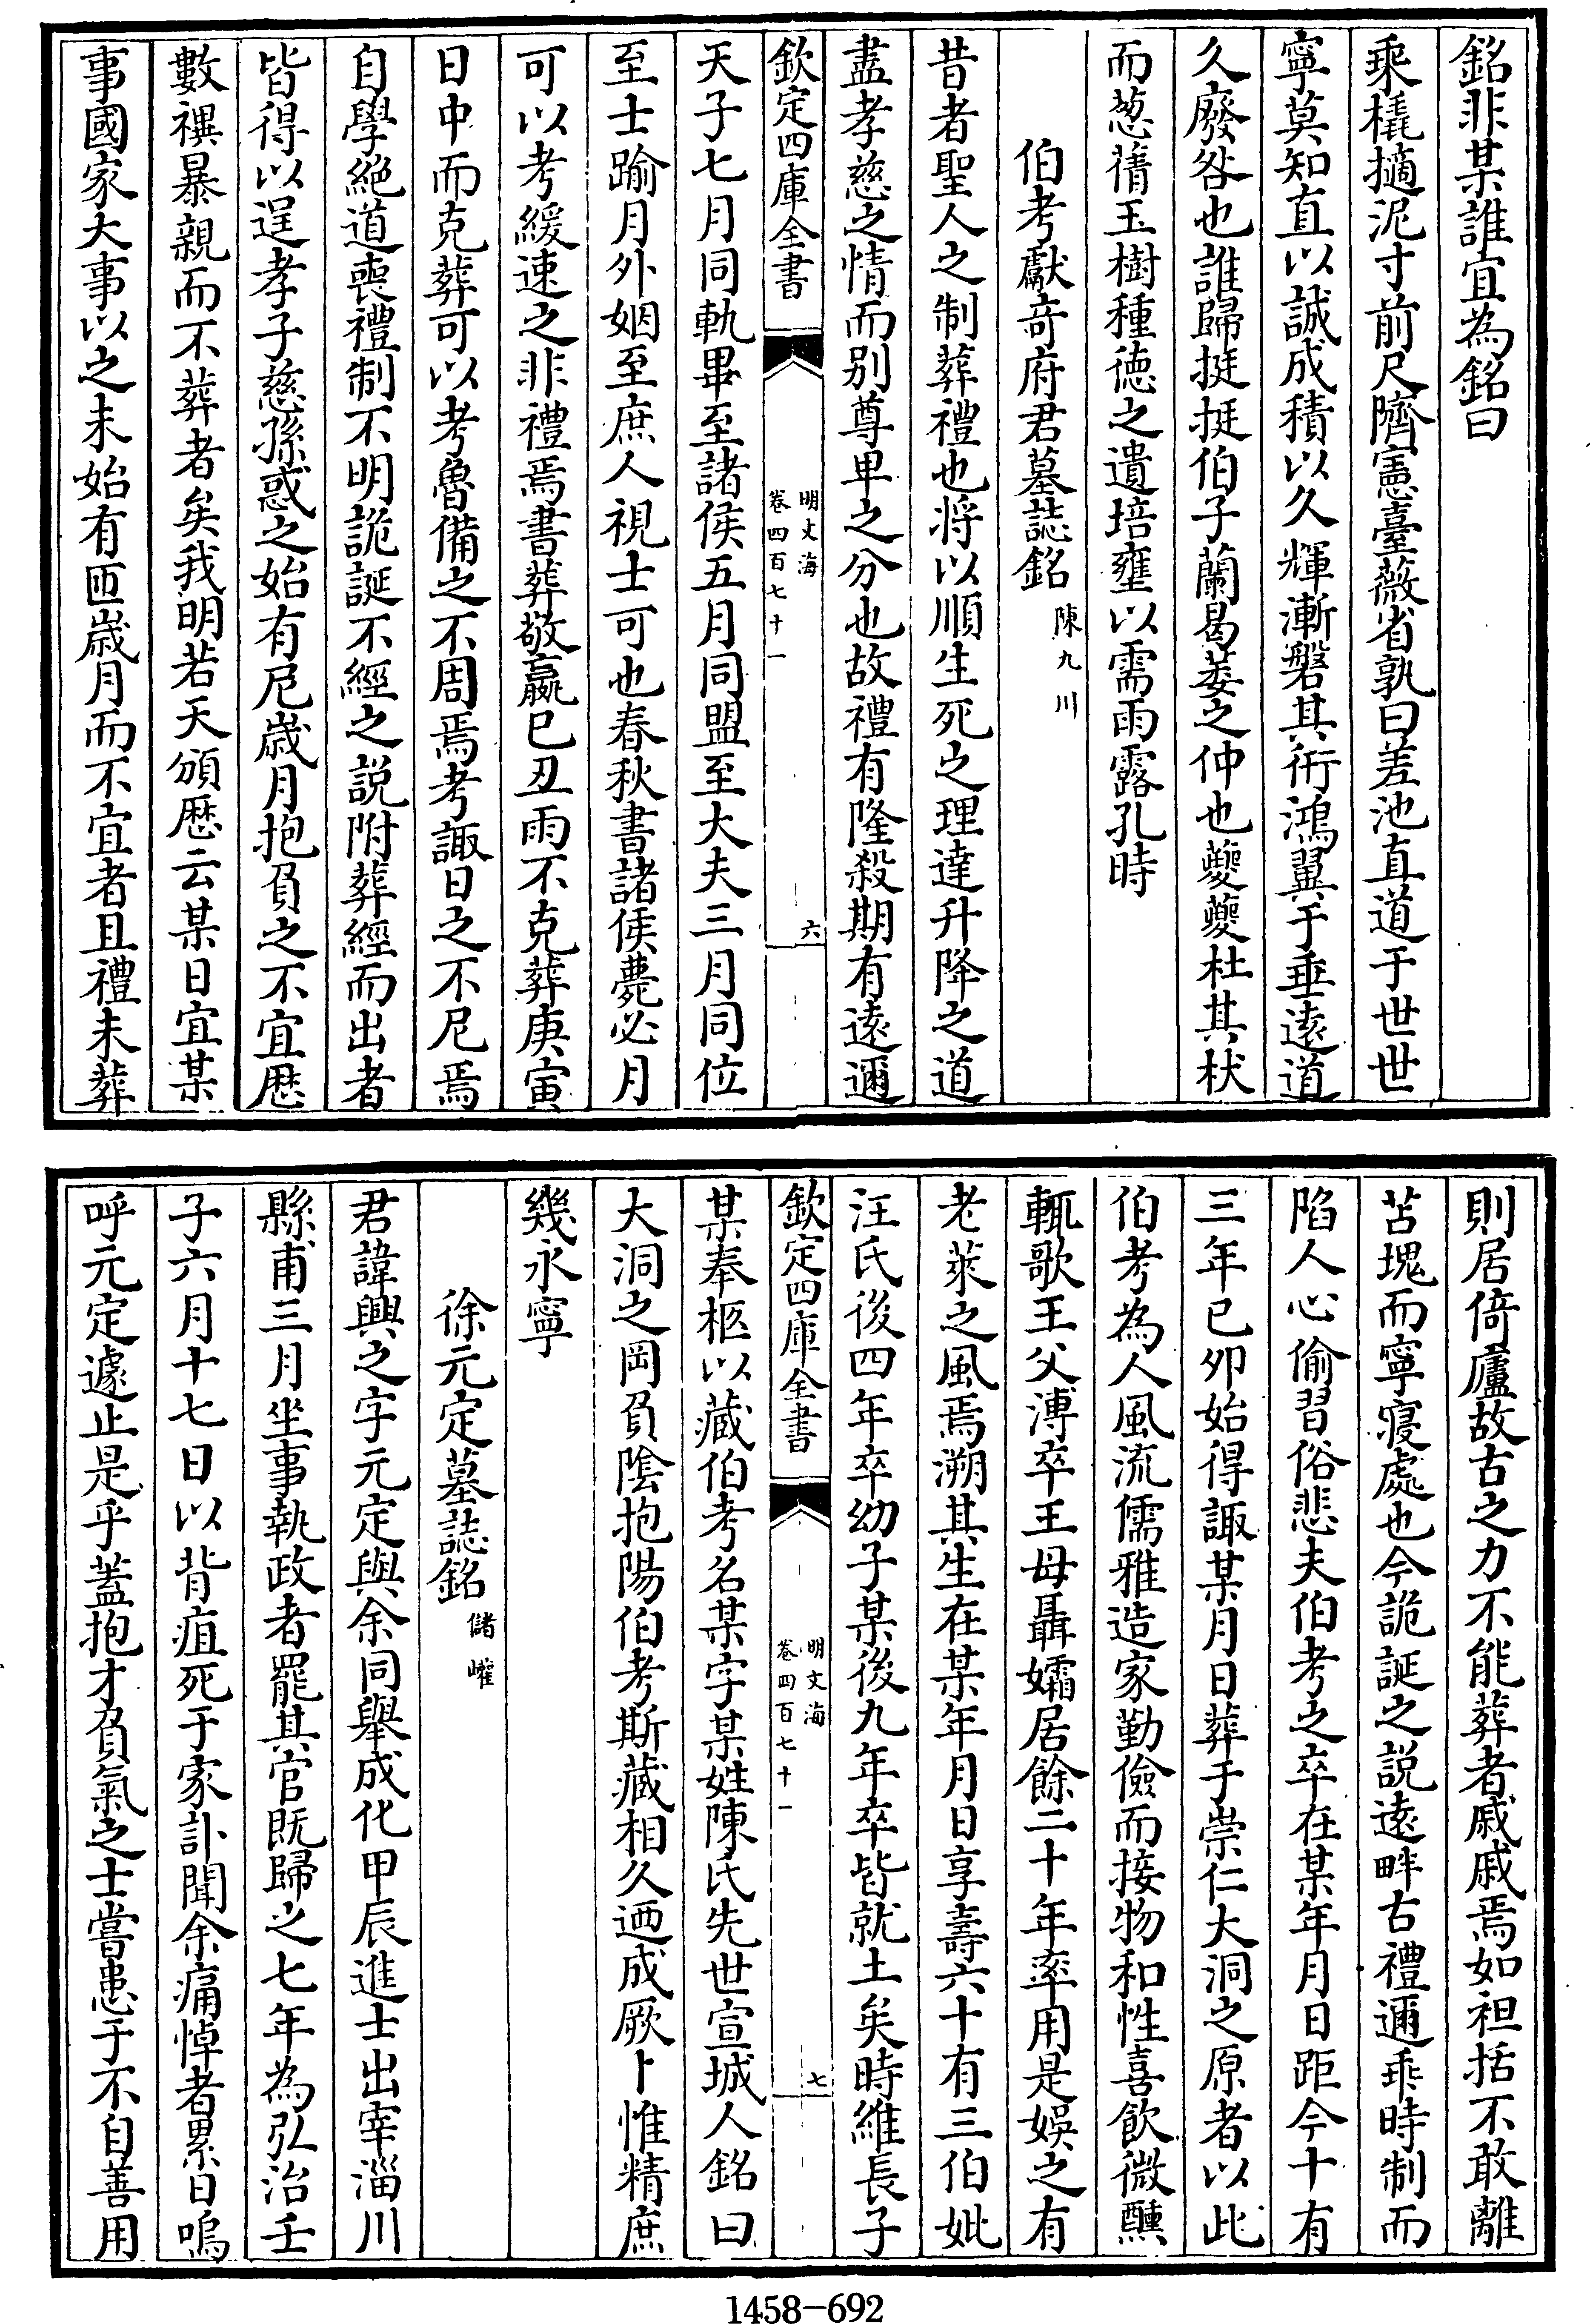 銘非某誰宜為銘曰
乘橇擿泥寸前尺隮憲臺薇省孰曰差池直道于世世
寧莫知直以誠成積以久輝漸磐其衎鴻翼于垂遠道
久廢咎也誰歸挺挺伯子蘭曷萎之仲也虁虁杜其杕
而葱蒨玉樹種徳之遺培壅以需雨露孔時
伯考獻竒府君墓誌銘 陳九川
昔者聖人之制葬禮也将以順生死之理達升降之道
盡孝慈之情而别尊卑之分也故禮有隆殺期有遠邇
欽定四庫全書
明文海
卷四百七十一
六
天子七月同軌畢至諸侯五月同盟至大夫三月同位
至士踰月外姻至庶人視士可也春秋書諸侯薨必月
可以考緩速之非禮焉書葬敬嬴已丑雨不克葬庚寅
日中而克葬可以考魯備之不周焉考諏日之不尼焉
自學絶道喪禮制不明詭誕不經之説附葬經而出者
皆得以逞孝子慈孫惑之始有尼嵗月抱負之不宜厯
數禩暴親而不葬者矣我明若天頒厯云某日宜某
事國家大事以之未始有匝嵗月而不宜者且禮未葬
則居倚廬故古之力不能葬者戚戚焉如袒括不敢離
苫塊而寧寢處也今詭誕之説遠畔古禮邇乖時制而
陷人心偷習俗悲夫伯考之卒在某年月日距今十有
三年已夘始得諏某月日葬于崇仁大洞之原者以此
伯考為人風流儒雅造家勤儉而接物和性喜飲微醺
輒歌王父溥卒王母聶孀居餘二十年率用是娛之有
老萊之風焉溯其生在某年月日享壽六十有三伯妣
汪氏後四年卒幼子某後九年卒皆就土矣時維長子
欽定四庫全書
明文海
卷四百七十一
七
某奉柩以藏伯考名某字某姓陳氏先世宣城人銘曰
大洞之岡負隂抱陽伯考斯藏相久迺成厥卜惟精庶
幾永寧
徐元定墓誌銘 儲巏
君諱興之字元定與余同舉成化甲辰進士出宰淄川
縣甫三月坐事執政者罷其官既歸之七年為弘治壬
子六月十七日以背疽死于家訃聞余痛悼者累日嗚
呼元定遽止是乎蓋抱才負氣之士嘗患于不自善用
1458-692